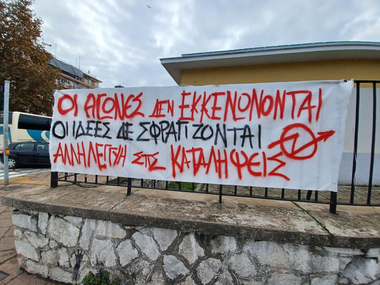 ΟΙ ΑΓΩΝΕΣ ΔΕΝ ΕΚΚΕΝΩΝΟΝΤΑΙ
ΟΙ ΙΔΕΕΣ ΔΕ ΣΦΡΑΓΙΖΟΝΤΑΙ
ΑΛΛΗΛΕΓΓΥΗ ΣΤΙΣ ΚΑΤΑΛΗΨΕΙΣ